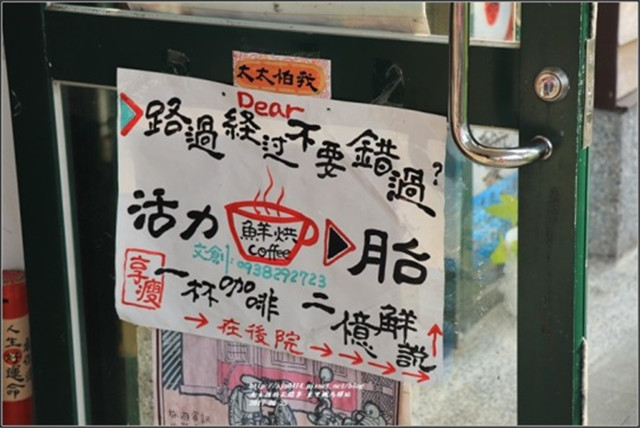 太太怕我
Dear
路過経过不要錯過?
活力
鮮烘
coffee
胎
文創:0938292723
享瘦
一杯咖啡二億鮮說
在後院
人生好運命